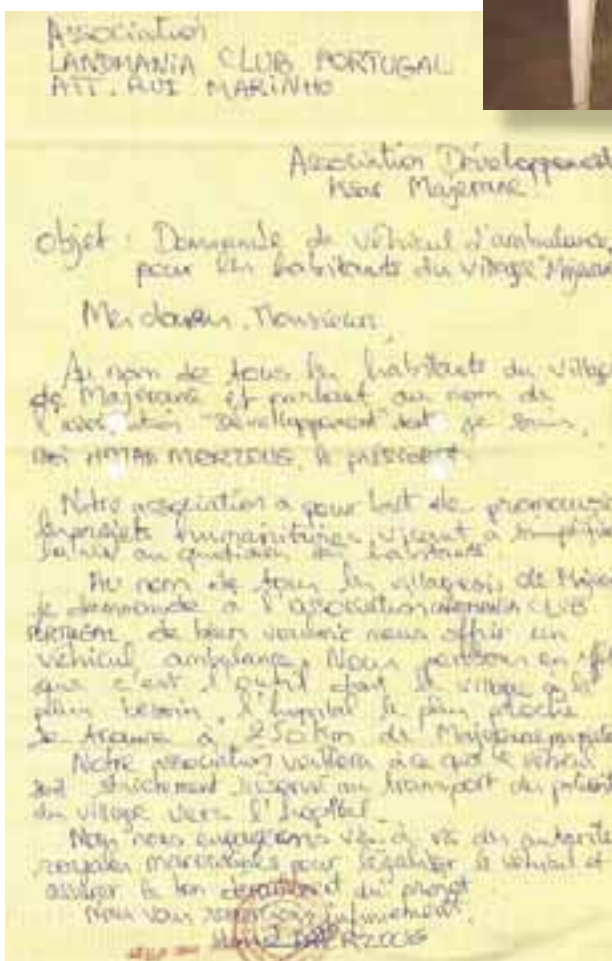 Association
LANDMANIA CLUB PORTUGAL
ATT. RUI MARINHO
Association Développement
Ksar Majerane
Objet : Demande de véhicul d'ambulance
pour les habitants du village
Monsieur
Au nom de tous les habitants du village
de Majerane et parlant au nom de
l'association "Développement" dont je suis,
MERZOUG, le président
Notre association a pour but de promouvoir
projets humanitaires visant à
la vie au quotidien des habitants
Au nom de tous les villageois de
je demande à l'association LANDMANIA CLUB
PORTUGAL de bien vouloir nous offrir un
véhicul ambulance. Nous pensons en
que c'est l'outil dont le village a le
plus besoin, l'hopital le plus proche
se trouve à 250 km de Majerane
Notre association veillera à ce que le véhicul
soit strictement réservé au transport des
du village vers l'hopital.
Nous nous engageons vis à vis des autorités
royales marocaines pour légaliser le véhicul et
assurer le bon du projet
Nous vous infiniment,
MERZOUG